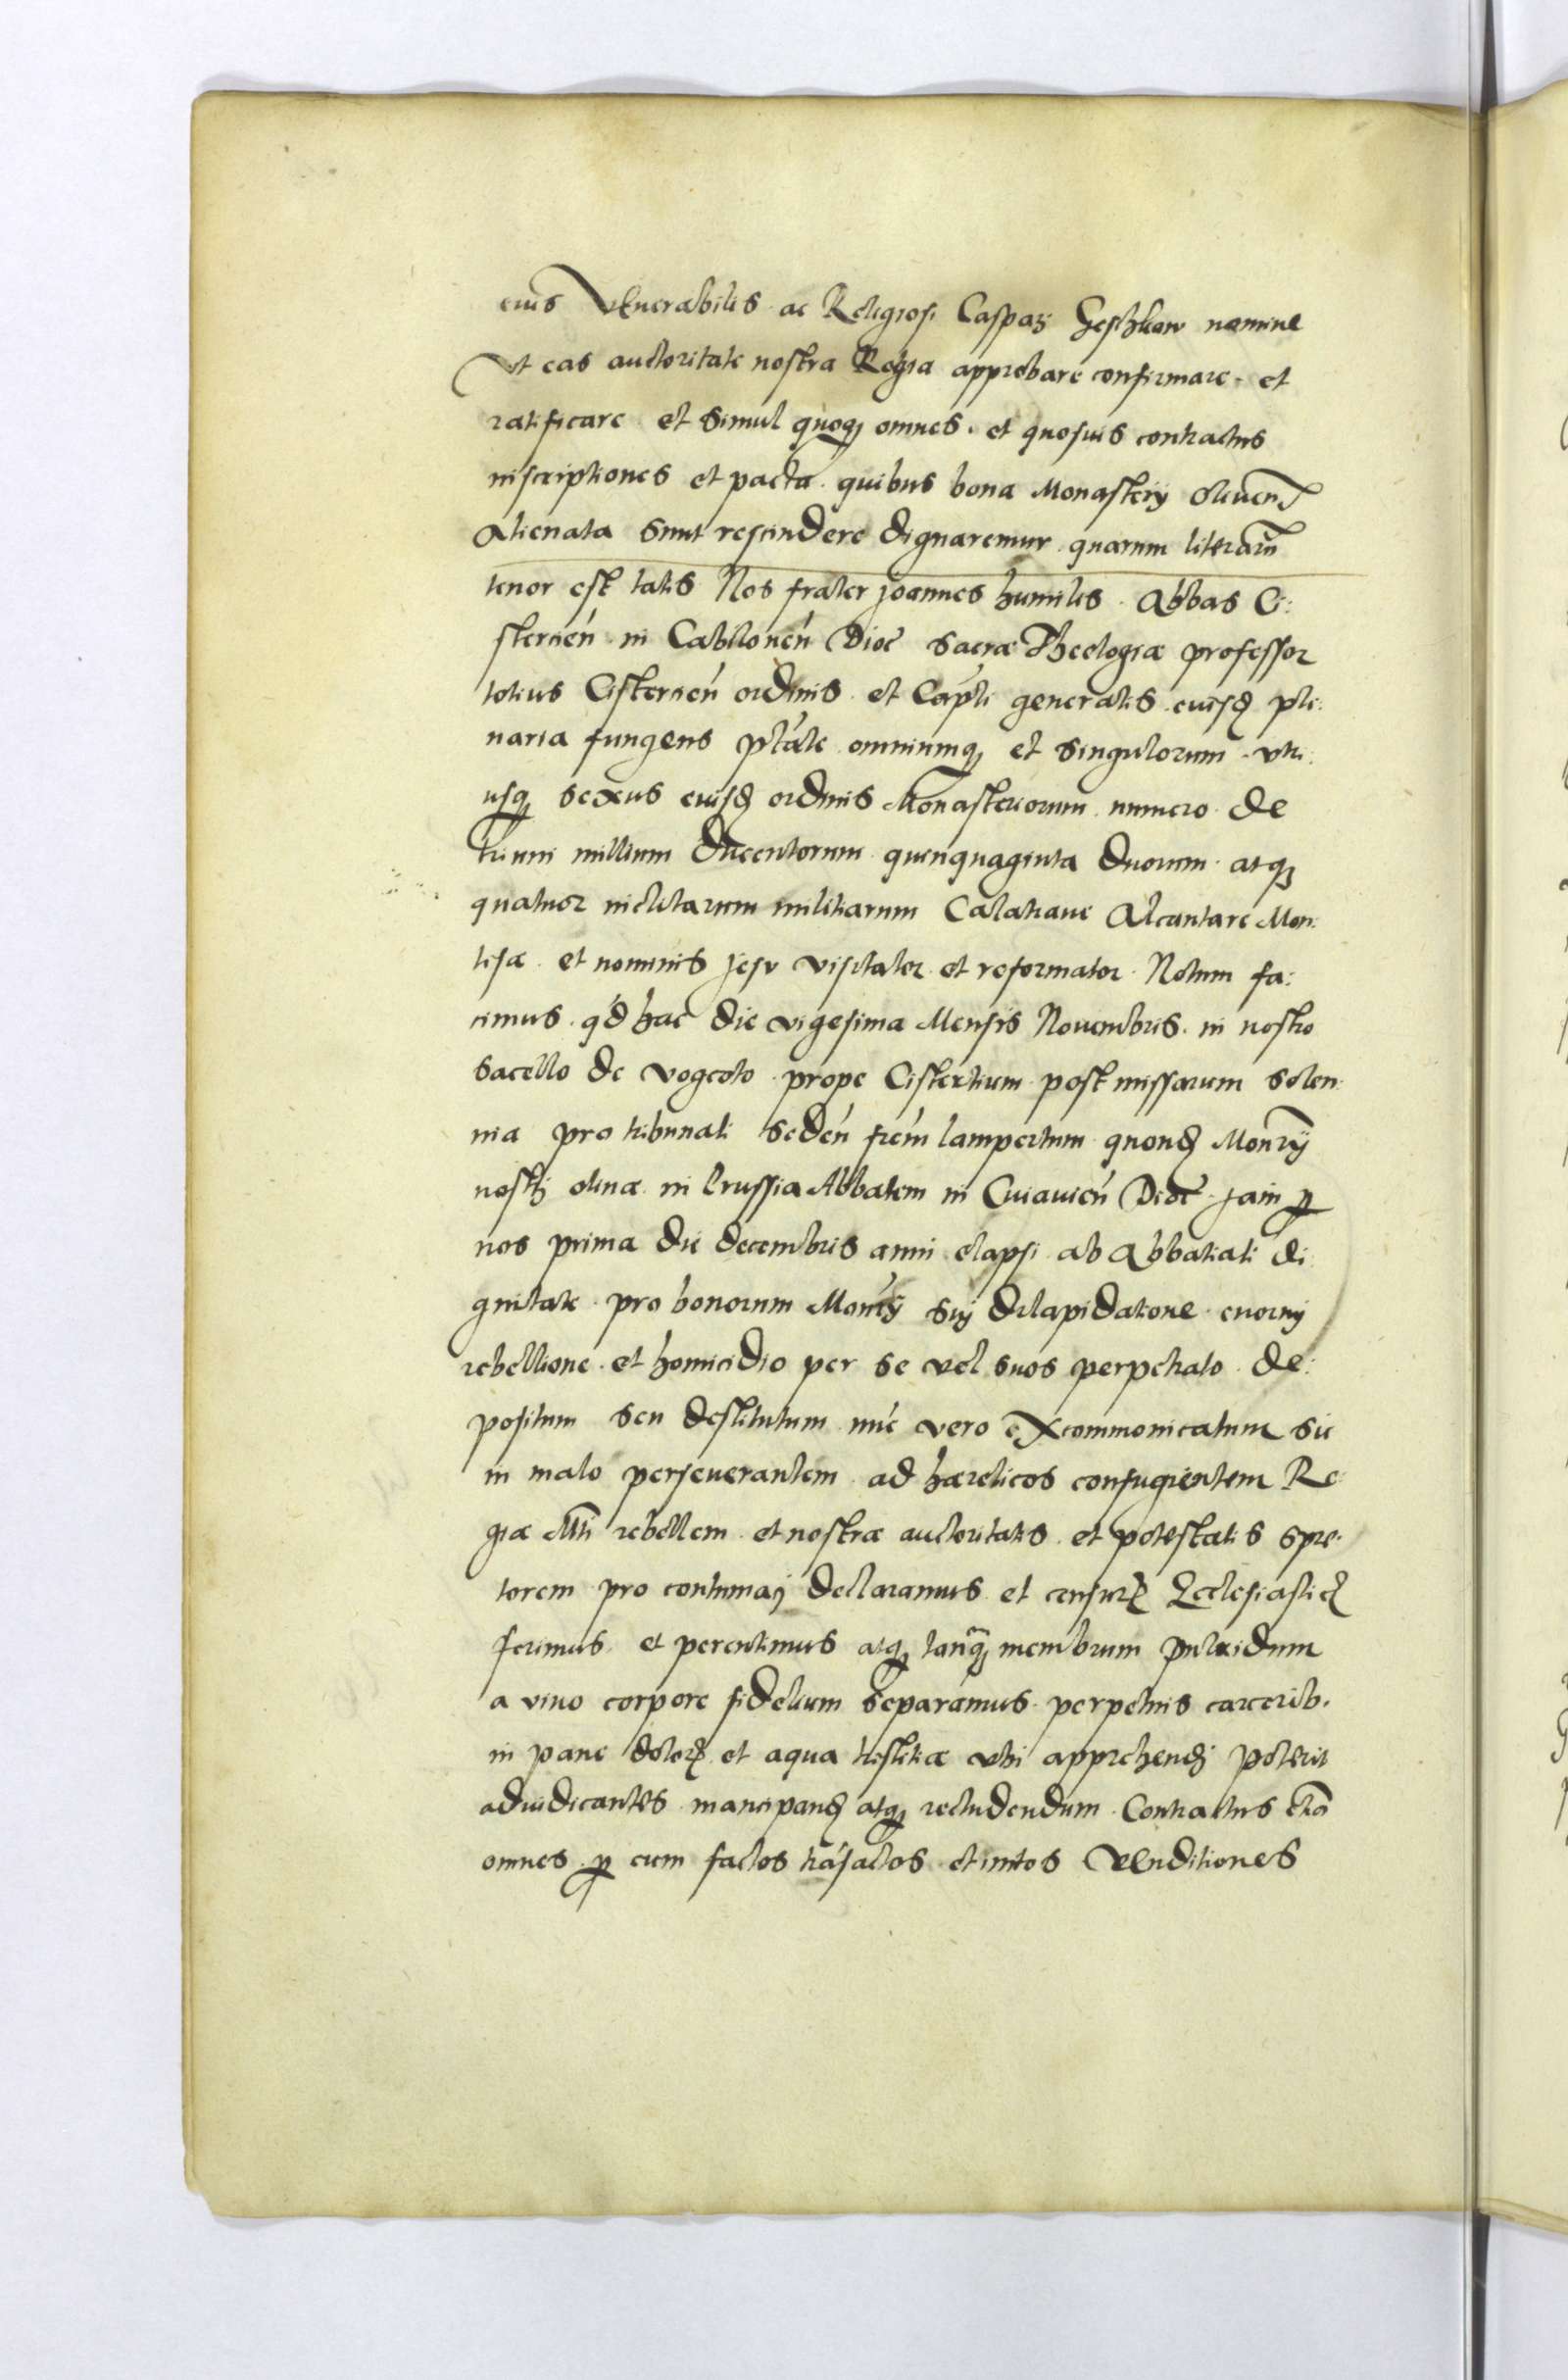 eius Venerabilis ac Religiosi Caspari Geschkaw nomine
Vt eas auctoritate nostra Regia approbare confirmare et
ratificare et simul quoqȝ omnes et quosuis contractus
inscriptiones et pacta quibus bona Monasterÿ Oliuen̄
Alienata sunt rescindere dignaremur quarum literaru̅
tenor est talis Nos frater Joannes humilis Abbas Ci:
stercien̄ in Cabilonen̄ Dioc̄ Sacræ Theologiæ professor
totius Cistercien̄ ordinis et Cap̄li generalis eiusdȝ ple:
naria fungens p̄tāte omniumqȝ et singulorum vtri:
usqȝ sexus eiusdȝ ordinis Monasteriorum numero de
trium millium ducentorum quinquaginta duorum atqȝ
quatuor inclitarum militiarum Calatraue Alcantare Mon:
tesæ et nominis Jesu visitator et reformator Notum fa:
cimus q'd hac die vigesima Mensis Nouembris in nostro
sacello de vogeoto prope Cistertium post missarum solen
nia pro tribunali seden̄ frēm lampertum quondȝ Mon̄rÿ
nostri oliuæ in Prussia Abbatem in Cuiauien̄ Dioc̄ jam ꝑ
nos prima die decembris anni elapsi ab Abbatiali di
gnitate pro bonorum Mon̄rÿ sui dilapidatione enormi
rebellione et homicidio per se vel suos perpetrato de:
positum seu destitutum nūc vero excommonicatum sic
in malo perseuerantem ad hæreticos confugientem Re:
giæ Mtī rebellem et nostræ auctoritatis et potestatis spre:
torem pro contumaci declaramus et censurȩ Ecclesiasticȩ
ferimus et percutimus atqȝ tanq̄ȝ membrum putridum
a viuo corpore fidelium separamus perpetuis carcerib.
in pane dolorȩ et aqua tristitiæ vbi apprehendi poterit
adiudicantes mancipandȝ atqȝ recludendum Contractus etiā
omnes ꝑ eum factos trāsactos et initos Venditiones